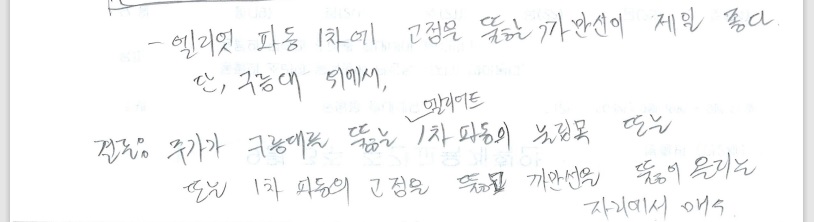 - 엘리엇 파동 1차에 고점을 뚫는 까만선이 제일 좋다.
단, 구름대 위에서,
엘리어트
결론은 주가가 구름대를 뚫는 1차 파동의 눌림목 또는
또는 1차 파동의 고점을 뚫는 까만선을 뚫어 올리는
자리에서 매수.